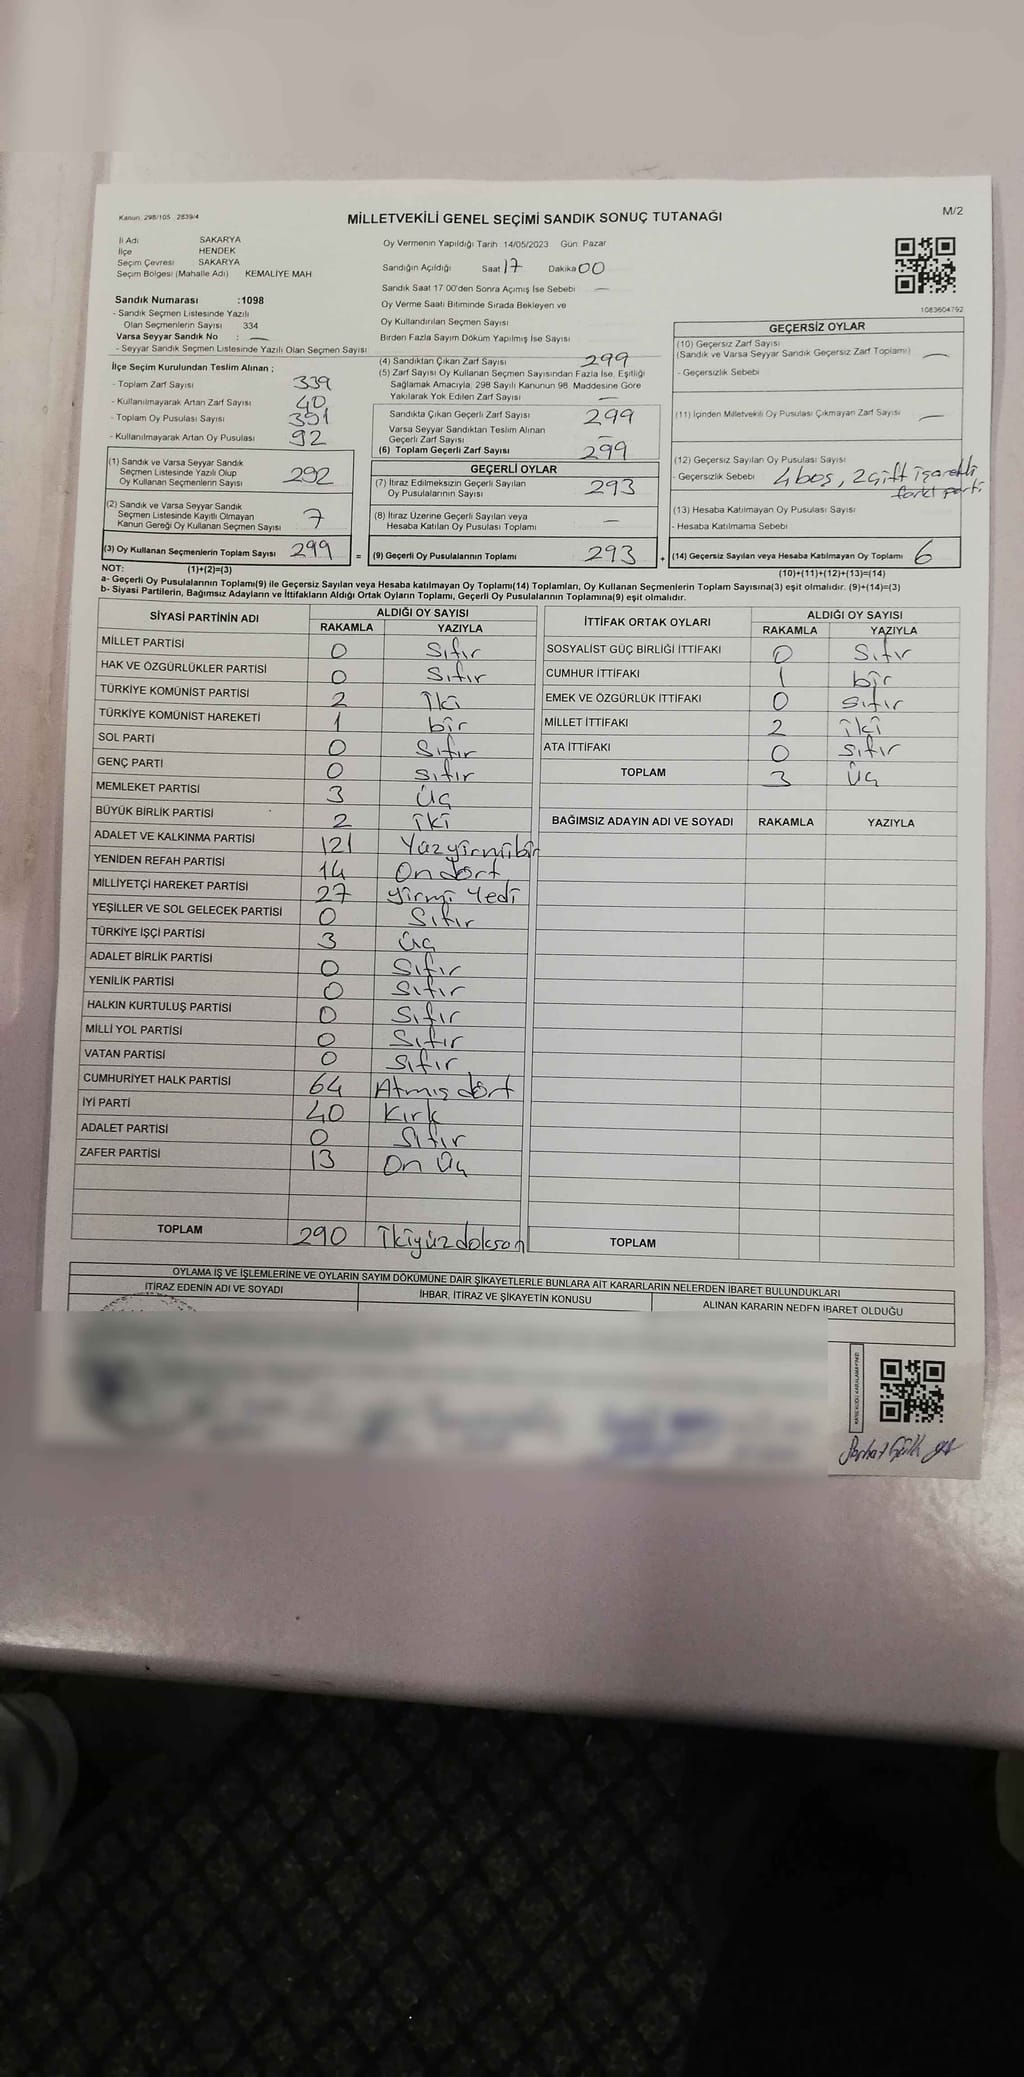 Kanun: 298/105 , 2839/4
MİLLETVEKİLİ GENEL SEÇİMİ SANDIK SONUÇ TUTANAĞI
M/2
İl Adı SAKARYA
İlçe HENDEK
Seçim Çevresi SAKARYA
Seçim Bölgesi (Mahalle Adı) KEMALİYE MAH
Sandık Numarası :1098
- Sandık Seçmen Listesinde Yazılı
Olan Seçmenlerin Sayısı 334
Varsa Seyyar Sandık No : —
- Seyyar Sandık Seçmen Listesinde Yazılı Olan Seçmen Sayısı
İlçe Seçim Kurulundan Teslim Alınan ;
- Toplam Zarf Sayısı 339
- Kullanılmayarak Artan Zarf Sayısı 40
- Toplam Oy Pusulası Sayısı 391
- Kullanılmayarak Artan Oy Pusulası 92
(1) Sandık ve Varsa Seyyar Sandık
Seçmen Listesinde Yazılı Olup
Oy Kullanan Seçmenlerin Sayısı 292
(2) Sandık ve Varsa Seyyar Sandık
Seçmen Listesinde Kayıtlı Olmayan
Kanun Gereği Oy Kullanan Seçmen Sayısı 7
(3) Oy Kullanan Seçmenlerin Toplam Sayısı 299
Oy Vermenin Yapıldığı Tarih 14/05/2023 Gün Pazar
Sandığın Açıldığı Saat 17 Dakika 00
Sandık Saat 17 00'den Sonra Açımış İse Sebebi —
Oy Verme Saati Bitiminde Sırada Bekleyen ve
Oy Kullandırılan Seçmen Sayısı
Birden Fazla Sayım Döküm Yapılmış İse Sayısı
(4) Sandıktan Çıkan Zarf Sayısı 299
(5) Zarf Sayısı Oy Kullanan Seçmen Sayısından Fazla İse, Eşitliği
Sağlamak Amacıyla, 298 Sayılı Kanunun 98. Maddesine Göre
Yakılarak Yok Edilen Zarf Sayısı —
Sandıkta Çıkan Geçerli Zarf Sayısı 299
Varsa Seyyar Sandıktan Teslim Alınan
Geçerli Zarf Sayısı —
(6) Toplam Geçerli Zarf Sayısı 299
GEÇERLİ OYLAR
(7) İtiraz Edilmeksizin Geçerli Sayılan
Oy Pusulalarının Sayısı 293
(8) İtiraz Üzerine Geçerli Sayılan veya
Hesaba Katılan Oy Pusulası Toplamı —
= (9) Geçerli Oy Pusulalarının Toplamı 293
1083604792
GEÇERSİZ OYLAR
(10) Geçersiz Zarf Sayısı
(Sandık ve Varsa Seyyar Sandık Geçersiz Zarf Toplamı) —
- Geçersizlik Sebebi
(11) İçinden Milletvekili Oy Pusulası Çıkmayan Zarf Sayısı —
(12) Geçersiz Sayılan Oy Pusulası Sayısı
- Geçersizlik Sebebi 4 boş, 2 çift işaretli
farklı parti
(13) Hesaba Katılmayan Oy Pusulası Sayısı
- Hesaba Katılmama Sebebi
+ (14) Geçersiz Sayılan veya Hesaba Katılmayan Oy Toplamı 6
NOT: (1)+(2)=(3) (10)+(11)+(12)+(13)=(14)
a- Geçerli Oy Pusulalarının Toplamı(9) ile Geçersiz Sayılan veya Hesaba katılmayan Oy Toplamı(14) Toplamları, Oy Kullanan Seçmenlerin Toplam Sayısına(3) eşit olmalıdır. (9)+(14)=(3)
b- Siyasi Partilerin, Bağımsız Adayların ve İttifakların Aldığı Ortak Oyların Toplamı, Geçerli Oy Pusulalarının Toplamına(9) eşit olmalıdır.
SİYASİ PARTİNİN ADI ALDIĞI OY SAYISI
RAKAMLA YAZIYLA
MİLLET PARTİSİ 0 Sıfır
HAK VE ÖZGÜRLÜKLER PARTİSİ 0 Sıfır
TÜRKİYE KOMÜNİST PARTİSİ 2 İki
TÜRKİYE KOMÜNİST HAREKETİ 1 bir
SOL PARTİ 0 Sıfır
GENÇ PARTİ 0 sıfır
MEMLEKET PARTİSİ 3 Üç
BÜYÜK BİRLİK PARTİSİ 2 iki
ADALET VE KALKINMA PARTİSİ 121 Yüzyirmibir
YENİDEN REFAH PARTİSİ 14 On dört
MİLLİYETÇİ HAREKET PARTİSİ 27 yirmi Yedi
YEŞİLLER VE SOL GELECEK PARTİSİ 0 Sıfır
TÜRKİYE İŞÇİ PARTİSİ 3 Üç
ADALET BİRLİK PARTİSİ 0 Sıfır
YENİLİK PARTİSİ 0 Sıfır
HALKIN KURTULUŞ PARTİSİ 0 Sıfır
MİLLİ YOL PARTİSİ 0 Sıfır
VATAN PARTİSİ 0 sıfır
CUMHURİYET HALK PARTİSİ 64 Atmış dört
İYİ PARTİ 40 Kırk
ADALET PARTİSİ 0 Sıfır
ZAFER PARTİSİ 13 On Üç
TOPLAM 290 İkiyüzdoksan
İTTİFAK ORTAK OYLARI ALDIĞI OY SAYISI
RAKAMLA YAZIYLA
SOSYALİST GÜÇ BİRLİĞİ İTTİFAKI 0 Sıfır
CUMHUR İTTİFAKI 1 bir
EMEK VE ÖZGÜRLÜK İTTİFAKI 0 sıfır
MİLLET İTTİFAKI 2 iki
ATA İTTİFAKI 0 sıfır
TOPLAM 3 Üç
BAĞIMSIZ ADAYIN ADI VE SOYADI RAKAMLA YAZIYLA
TOPLAM
OYLAMA İŞ VE İŞLEMLERİNE VE OYLARIN SAYIM DÖKÜMÜNE DAİR ŞİKAYETLERLE BUNLARA AİT KARARLARIN NELERDEN İBARET BULUNDUKLARI
İTİRAZ EDENİN ADI VE SOYADI İHBAR, İTİRAZ VE ŞİKAYETİN KONUSU ALINAN KARARIN NEDEN İBARET OLDUĞU